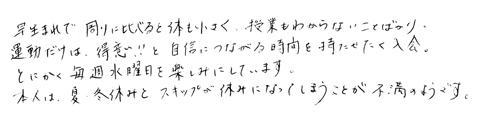 早生まれで周りに比べると体も小さく、授業もわからないことばかり。
運動だけは、得意!!と自信につながる時間を持たせたく入会。
とにかく毎週水曜日を楽しみにしています。
本人は、夏・冬休みとスキップが休みになってしまうことが不満のようです。